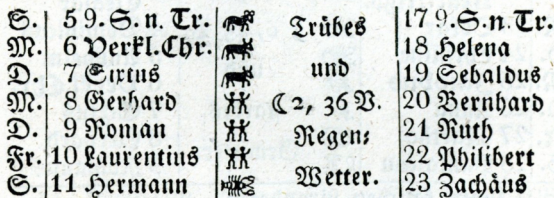 S. 5 9. S. n. Tr. Trübes 17 9. S. n. Tr.
M. 6 Verkl. Chr. 18 Helena
D. 7 Sixtus und 19 Sebaldus
M. 8 Gerhard ☾ 2, 36 V. 20 Bernhard
D. 9 Roman Regen⸗ 21 Ruth
Fr. 10 Laurentius 22 Philibert
S. 11 Hermann Wetter. 23 Zachäus